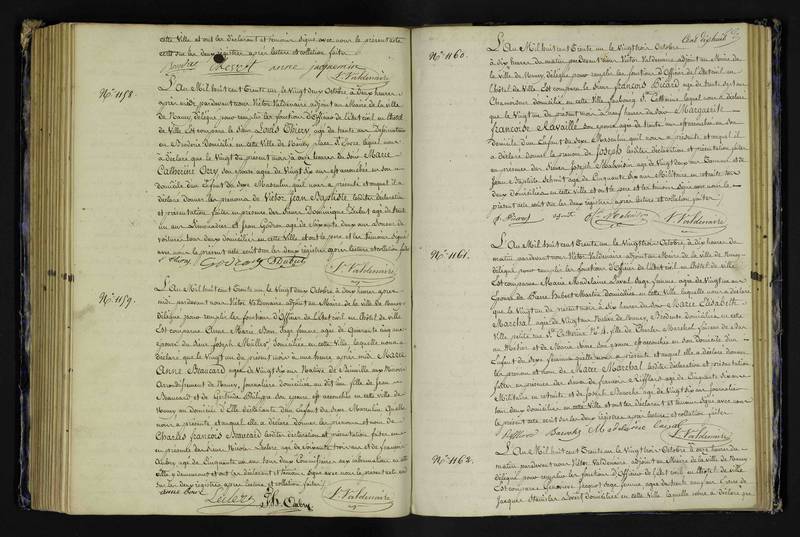 cette Ville et ont les déclarant et témoins signé avec nous le présent acte
écrit sur les deux registres après lecture et collation faites
anne jacquemin
V. Valdenaire
N.° 1158.
L'An Mil huit cent Trente un le Vingt deux Octobre à Deux heures
après midi, pardevant nous Victor Valdenaire adjoint au Maire de la ville
de Nancy, délégué pour remplir les fonctions d'Officier de l'Etat civil en l'hôtel
de Ville. Est comparu le Sieur Louis Thiery, âgé de trente ans
en Broderie domicilié en cette Ville de Nancy, place lequel nous
a déclaré que le Vingt du présent mois à onze heures du soir Marie
Catherine son épouse âgée de Vingt six ans est accouchée en son
domicile d'un Enfant du sexe Masculin, qu'il nous a présenté et auquel il a
déclaré donner les prénoms de Victor Jean Baptiste, lesdites déclaration
et présentation faites en présence des Sieurs Dominique Dubut âgé de trente
un ans et Jean Godron, âgé de soixante deux ans, Loueur de
voitures, tous deux domiciliés en cette Ville et ont le père et les témoins signé
avec nous le présent acte écrit sur les deux registres après lecture et collation faites
Godron Dubut
V. Valdenaire
N.° 1159.
L'An Mil huit cent Trente un le Vingt deux Octobre à deux heures après
midi pardevant nous Victor Valdenaire adjoint au Maire de la ville de Nancy
délégué pour remplir les fonctions d'Officier de l'Etat civil en l'hôtel de Ville
Est comparue Anne Marie sage femme, âgée de Quarante cinq ans
épouse du Sieur Joseph Müller, domiciliée en cette Ville, laquelle nous a
déclaré que le Vingt un du présent mois à une heure après midi, Marie
Anne Beaucard âgée de Vingt six ans Native de
Arrondissement de Nancy, journalière domiciliée au dit lieu fille de Jean
Beaucard et de son épouse est accouchée en cette ville de
Nancy au domicile d'Elle déclarante d'un Enfant du sexe Masculin, Qu'elle
nous a présenté et auquel elle a déclaré donner les prénoms et nom de
Charles François Beaucard lesdites déclaration et présentation faites en
présence des Sieurs Nicolas Leclerc âgé de soixante trois ans et de François
Aubry âgé de Cinquante six ans tous deux Commissaires aux inhumations en cette
ville y demeurant et ont les déclarant et témoins signé avec nous le présent acte écrit
sur les deux registres après lecture et collation faites
Leclerc F. Aubry V. Valdenaire
N.° 1160.
L'An Mil huit cent Trente un le Vingt trois Octobre
à dix heures du matin pardevant nous Victor Valdenaire adjoint au Maire de
la ville de Nancy, délégué pour remplir les fonctions d'Officier de l'Etat civil en
l'hôtel de Ville. Est comparu le Sieur François Picard âgé de trente sept ans
Chamoiseur domicilié en cette Ville, faubourg S.te Catherine lequel nous a déclaré
que le Vingt un du présent mois à neuf heures du soir Marguerite
Françoise son épouse âgée de trente un ans est accouchée en son
domicile d'un Enfant du sexe Masculin qu'il nous a présenté et auquel il a
déclaré donner le prénom de Joseph lesdites déclaration et présentation faites
en présence des Sieurs Joseph âgé de Vingt deux ans et de
Jean Baptiste Schmit âgé de Cinquante six ans Militaire en retraite tous
deux domiciliés en cette ville et ont le père et les témoins signé avec nous le
présent acte écrit sur les deux registres après lecture et collation faites
V. Valdenaire
N.° 1161.
L'An Mil huit cent Trente un le Vingt trois Octobre, à dix heures du
matin pardevant nous Victor Valdenaire adjoint au Maire de la ville de Nancy
délégué pour remplir les fonctions d'Officier de l'Etat civil en l'hôtel de ville
Est comparue Marie Madelaine sage femme, âgée de Vingt neuf ans
épouse de Pierre Hubert Martin domiciliée en cette Ville laquelle nous a déclaré
que le Vingt un du présent mois à dix heures du soir Marie Elisabeth
Marchal âgée de Vingt ans Native de Nancy, Brodeuse domiciliée en cette
Ville petite rue S.te Catherine N.° 4, fille de Charles Marchal faiseur de Bas
au Métier et de Marie son épouse est accouchée en son domicile d'un
Enfant du sexe féminin qu'elle nous a présenté et auquel elle a déclaré donner
les prénom et nom de Marie Marchal lesdites déclaration et présentation
faites en présence des Sieurs de François âgé de Cinquante six ans
Militaire en retraite et de Joseph âgé de Vingt six ans journalier
tous deux domiciliés en cette Ville et ont les déclarant et témoins signé avec nous
le présent acte écrit sur les deux registres après lecture et collation faites
V. Valdenaire
N.° 1162.
L'An Mil huit cent Trente un le Vingt trois Octobre à onze heures du
matin pardevant nous Victor Valdenaire adjoint au Maire de la Ville de Nancy
délégué pour remplir les fonctions d'Officier de l'Etat civil en l'hôtel de ville
Est comparue Geneviève Jacquot sage femme, âgée de trente ans, Epouse de
Jacques Stanislas domiciliée en cette Ville, laquelle nous a déclaré que